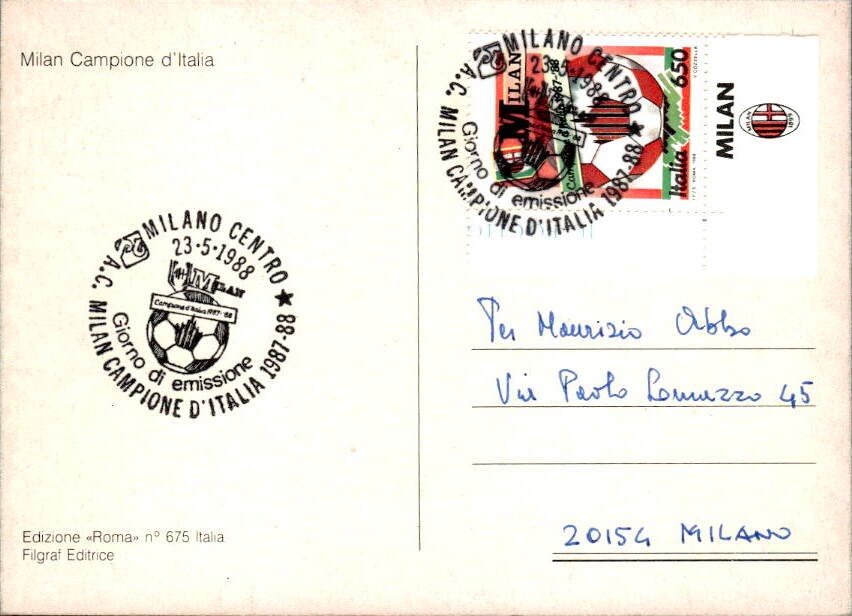 Milan Campione d'Italia
MILANO CENTRO
23-5-1988
MILAN
Campione d'Italia 1987-'88
Giorno di emissione
A.C. MILAN CAMPIONE D'ITALIA 1987-88
MILANO CENTRO
23-5-1988
Giorno di emissione
A.C. MILAN CAMPIONE D'ITALIA 1987-88
MILAN
Italia 650
MILAN
MILAN 1899
Per Maurizio Abbo
Via Paolo Lomazzo 45
20154 MILANO
Edizione «Roma» n° 675 Italia
Filgraf Editrice